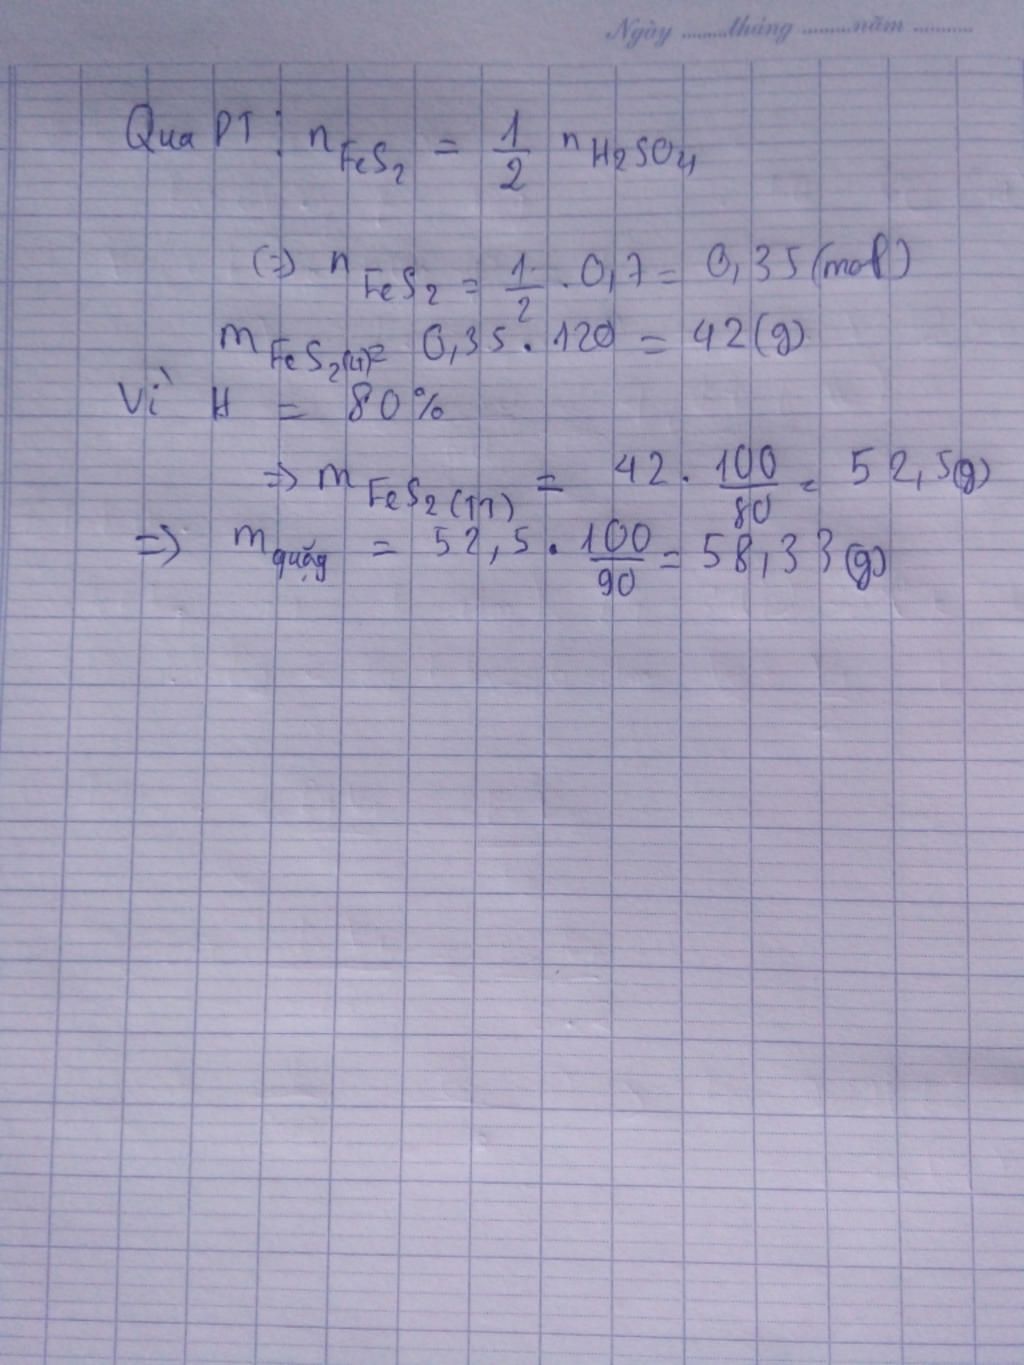 Ngày ........tháng ........năm ..........
Qua PT: n FeS2 = 1/2 n H2SO4
(=> n FeS2 = 1/2 . 0,7 = 0,35 (mol)
m FeS2(lt) = 0,35 . 120 = 42 (g)
Vì H = 80%
=> m FeS2 (TT) = 42 . 100/80 = 52,5(g)
=> m quặg = 52,5 . 100/90 = 58,33 (g)